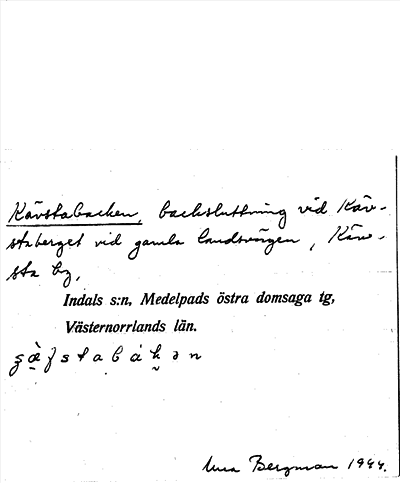 Kävstabacken, backsluttning vid Käv-
staberget vid gamla landsvägen, Käv-
sta by,
Indals s:n, Medelpads östra domsaga tg,
Västernorrlands län.
Bergman 1944.